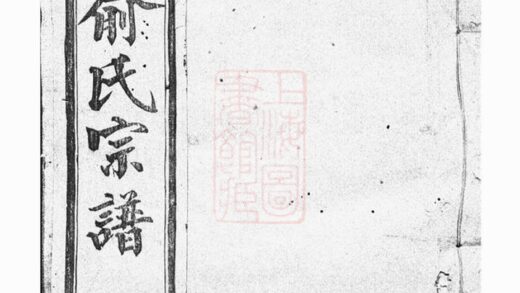 俞氏宗譜
上海圖
書館藏